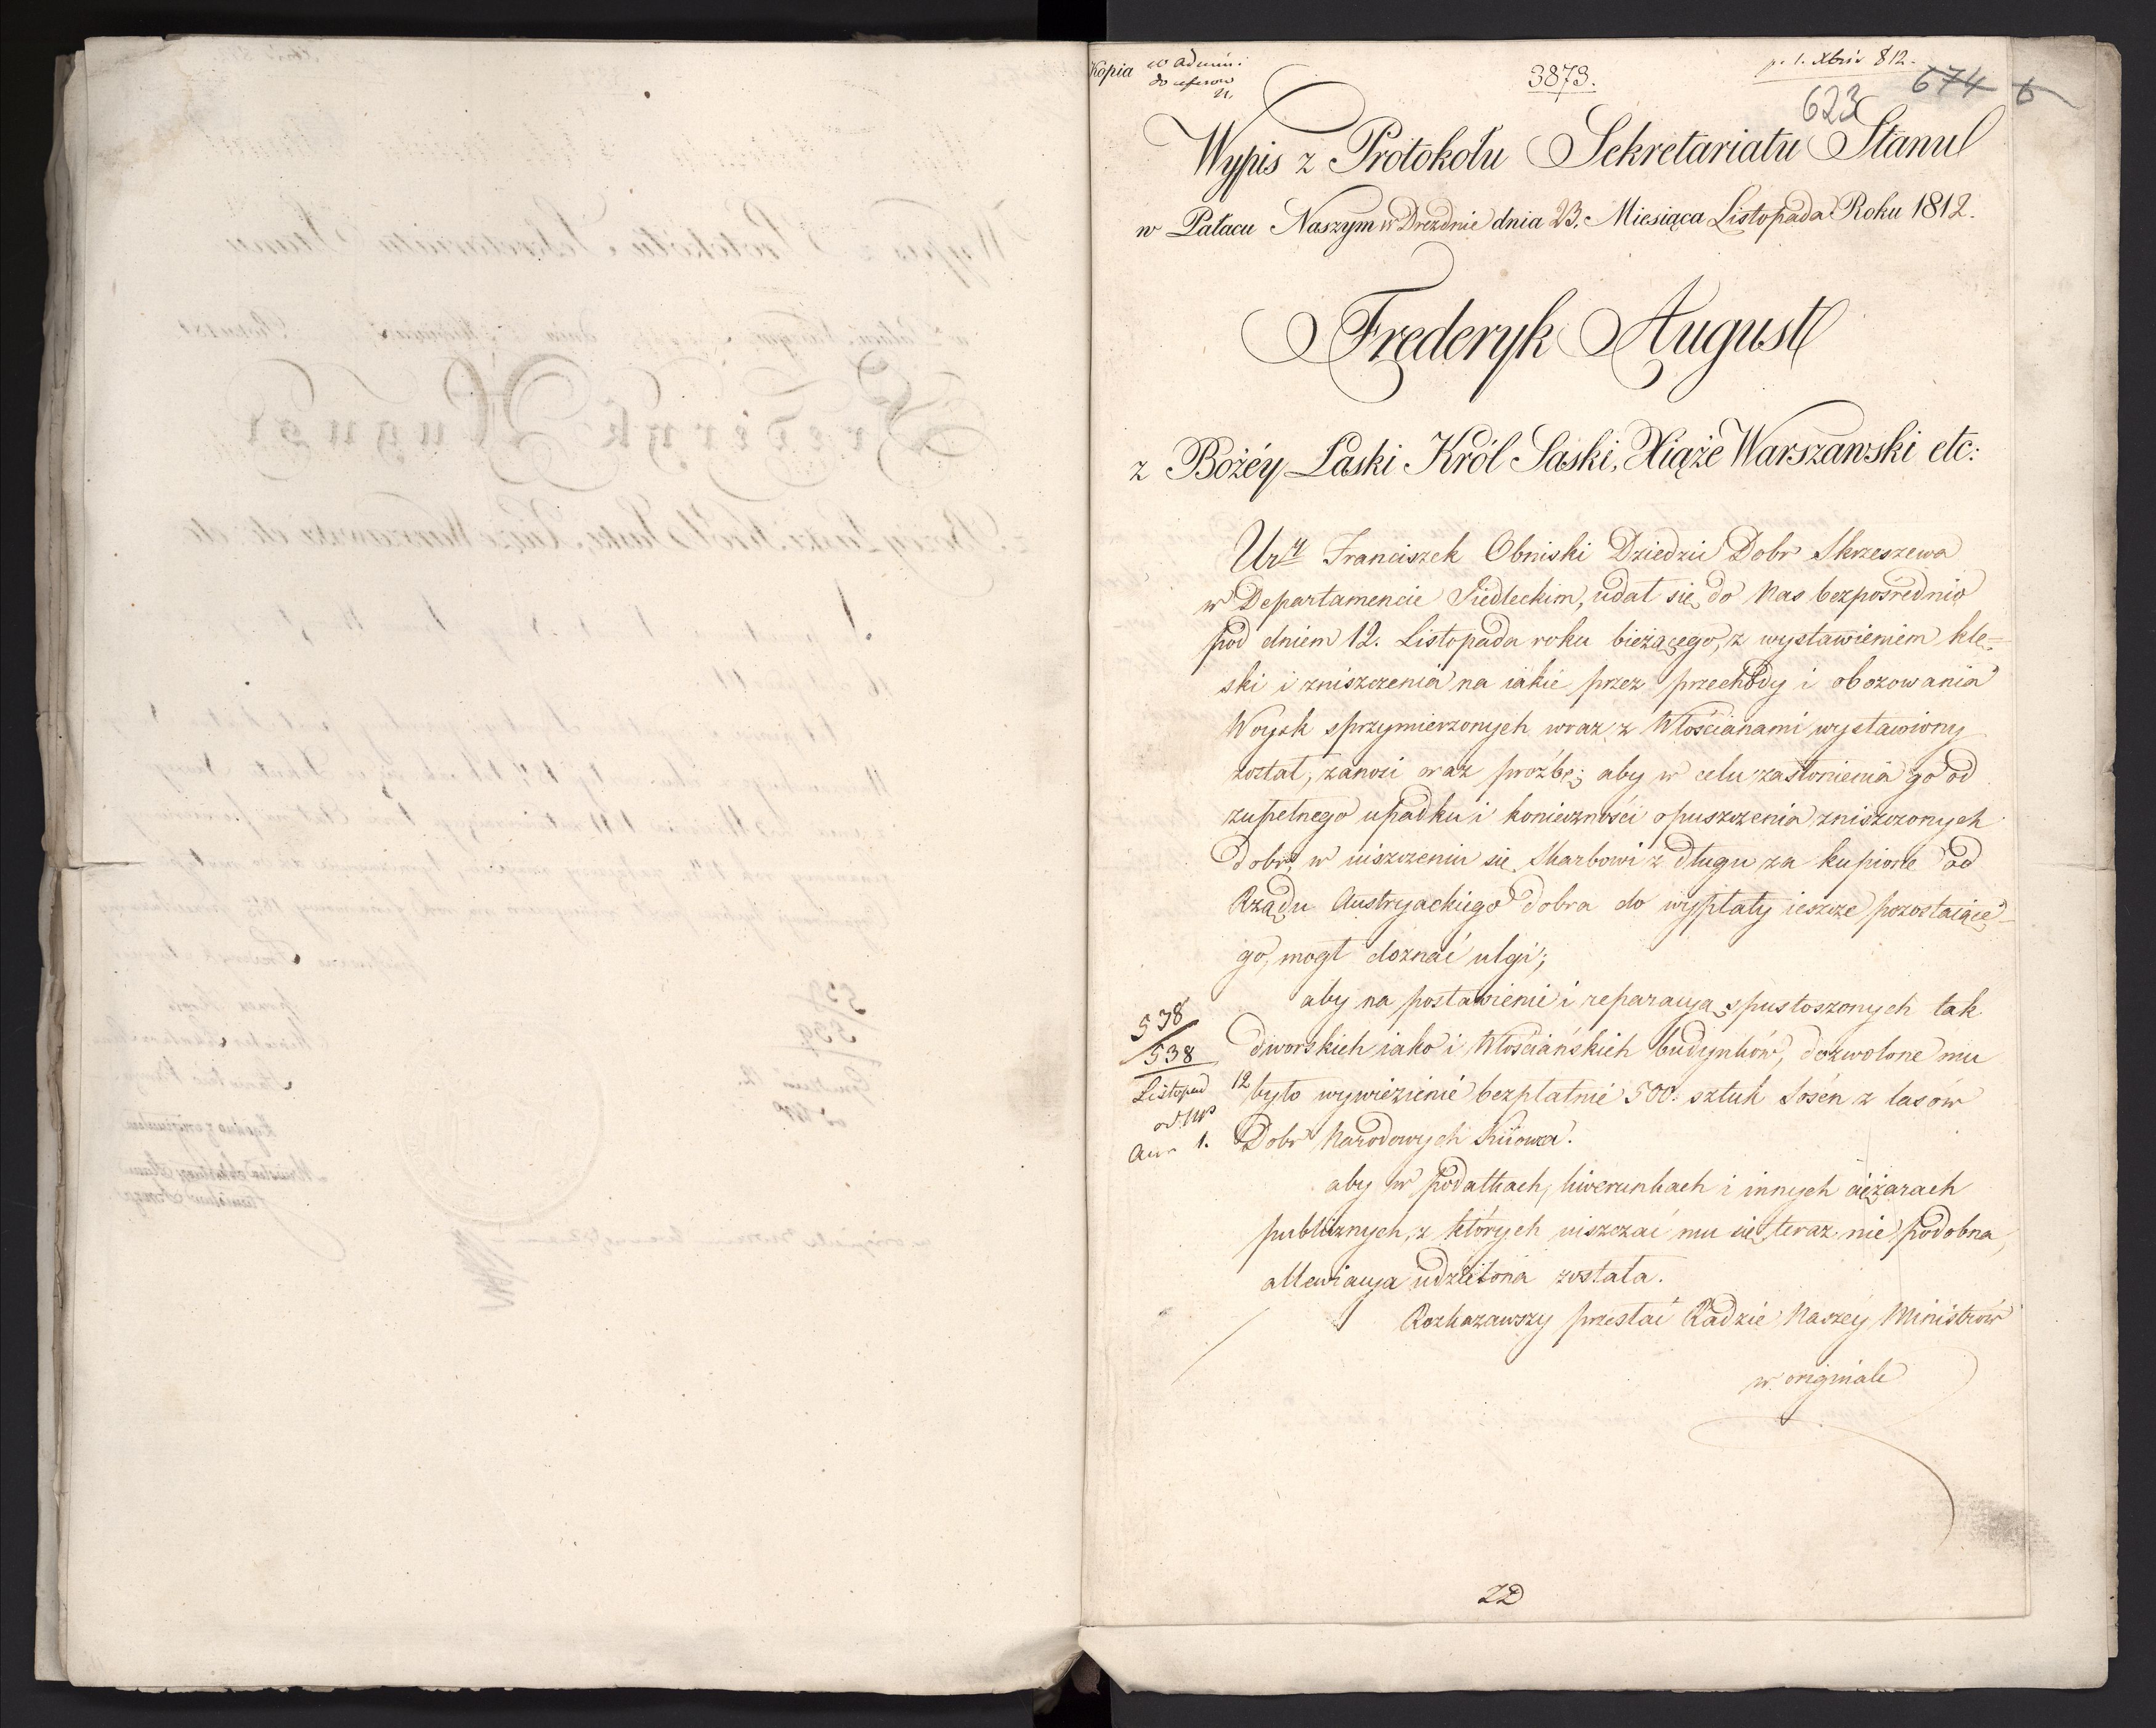 Kopia
w Admini:
3873.
p. 1. Xbris 812.
674
623
Wypis z Protokołu Sekretariatu Stanu
w Pałacu Naszym w Dreźdnie dnia 23. Miesiąca Listopada Roku 1812.
Frederyk August
z Bożéy Łaski Król Saski, Xiąże Warszawski etc:
Ur. Franciszek Obniski Dziedzic Dobr Skrzeszewa
w Departamencie Siedleckim, udał się do Nas bezpośrednio
pod dniem 12. Listopada roku bieżącego, z wystawieniem klę=
ski i zniszczenia na iakie przez przechody i obozowania
Woysk sprzymierzonych wraz z Włościanami wystawiony
został, zanosi oraz proźbę; aby w celu zasłonienia go od
zupełnego upadku i konieczności opuszczenia zniszczonych
dobr, w uiszczeniu się Skarbowi z długu za kupione od
Rządu Austryackiego dobra do wypłaty ieszcze pozostaiące=
go, mogł doznać ulgi;
aby na postawienie i reparacyą spustoszonych tak
dworskich iako i Włościańskich budynków, dozwolone mu
było wywiezienie bezpłatnie 500. sztuk Sosen z lasów
Dobr Narodowych Kiiowca.
538
538
Listopad 12
1.
aby w podatkach, liwerunkach i innych ciężarach
publicznych, z których uiszczać mu się teraz nie podobna,
allewiacya udzielona została.
Rozkazawszy przesłać Radzie Naszey Ministrów
w originale